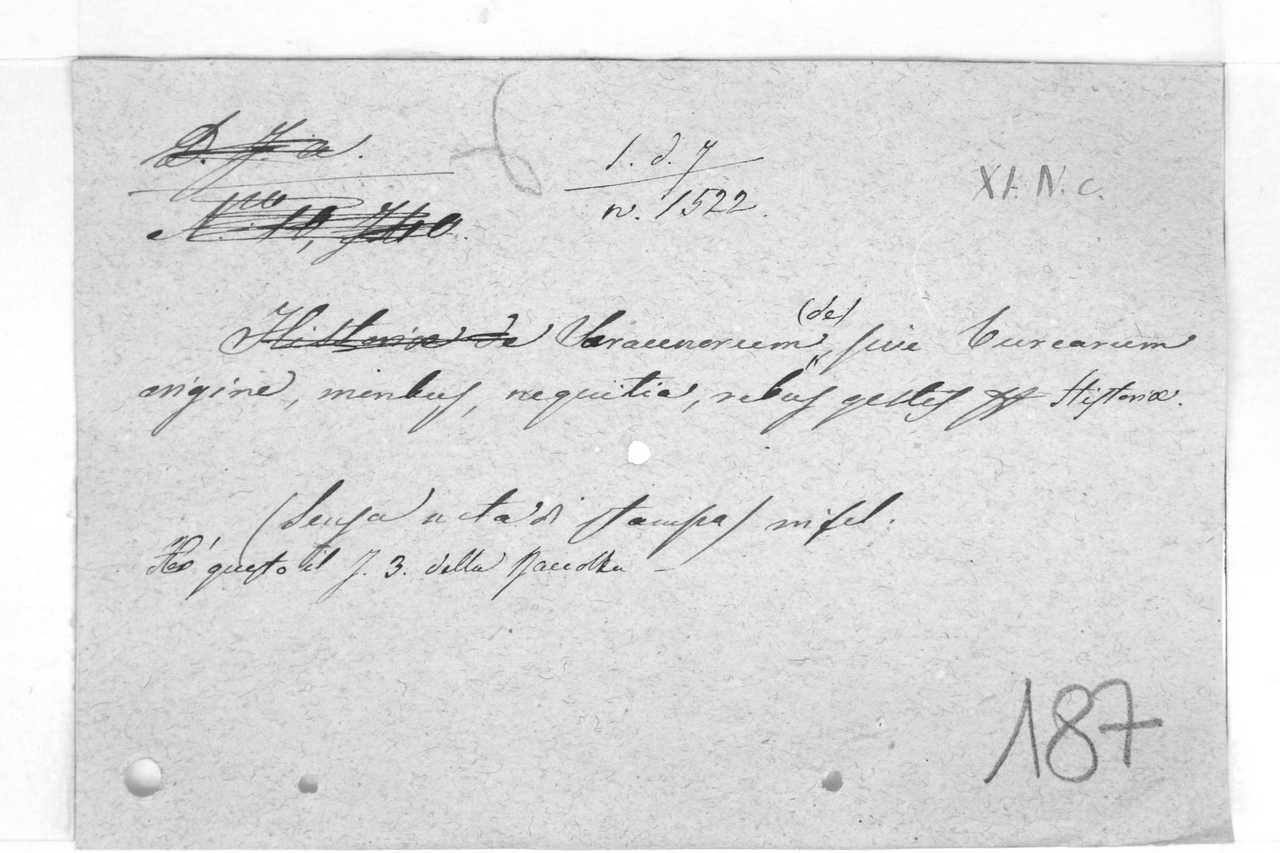 D. J. a.
1. d. 7
XI. N. c.
n. 1522.
Historia de Saracenorum (de), sive Turcarum
origine, moribus, nequitia, rebus gestis Historia.
(Senza nota di stampa) mifcl.
questo il J. 3. della Raccolta –
187